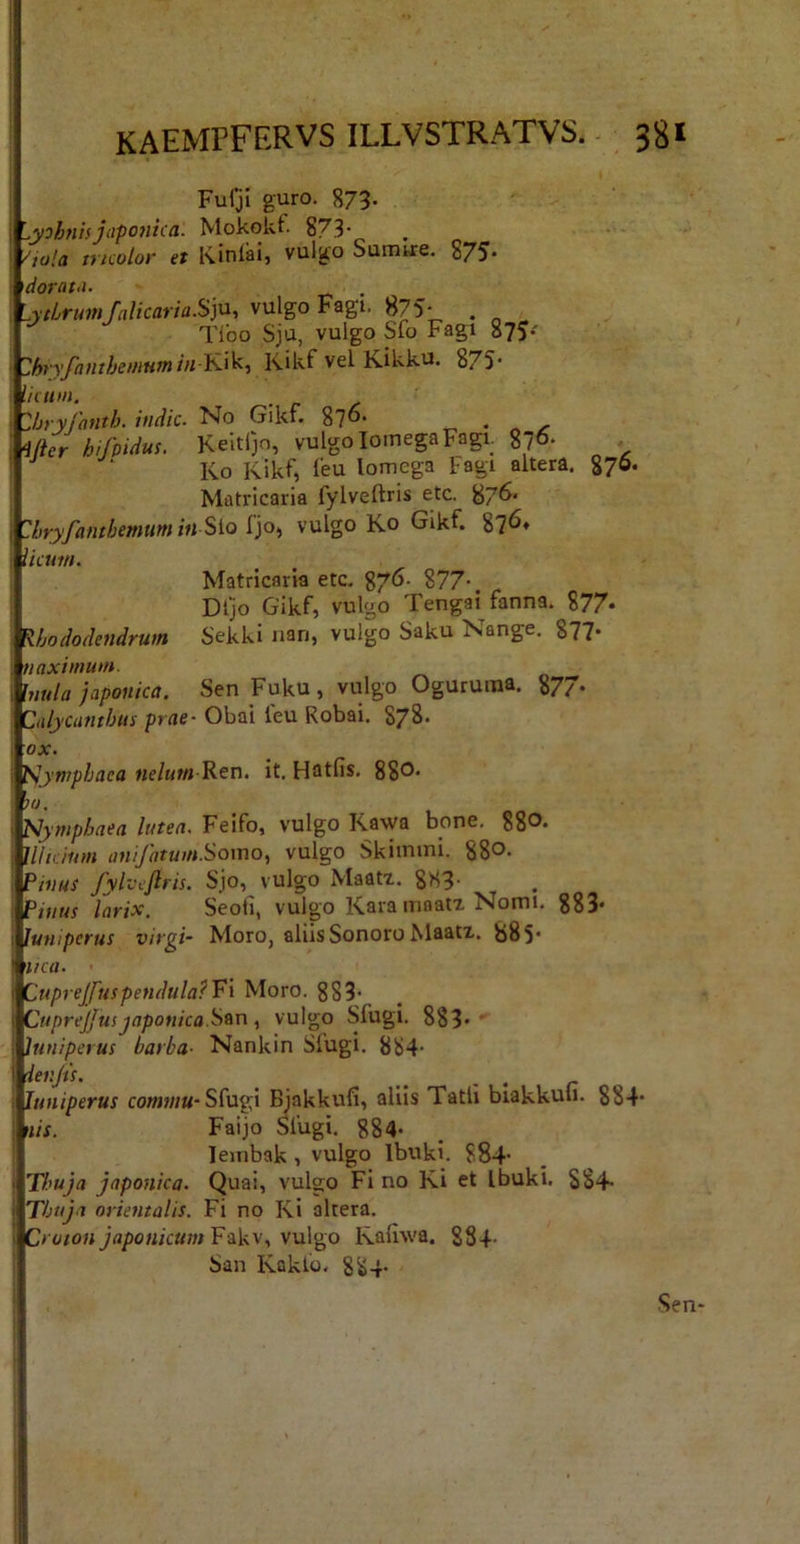 KAEMPFERVS ILLVSTRATVS. 381
Fuſji guro. 873.
Lychnis japonica. Mokokf. 873.
Viola tricolor et Kinſai, vulgo Sumire. 875.
odorata.
Lythrum ſalicaria. Sju, vulgo Fagi. 875.
Tſoo Sju, vulgo Sſo Fagi 875.
Chryſanthemum in- Kik, Kikf vel Kikku. 875.
dicum.
Chryſanth. indic. No Gikf. 876.
Aſter hiſpidus. Keitſjo, vulgo Iomega Fagi. 876.
Ko Kikf, ſeu Iomega Fagi altera. 876.
Matricaria ſylveſtris etc. 876.
Chryſanthemum in- Sio ſjo, vulgo Ko Gikf. 876.
dicum.
Matricaria etc. 876. 877.
Dſjo Gikf, vulgo Tengai fanna. 877.
Rhododendrum Sekki nan, vulgo Saku Nange. 877.
maximum.
Inula japonica. Sen Fuku, vulgo Oguruma. 877.
Calycanthus prae- Obai ſeu Robai. 878.
cox.
Nymphaea nelum- Ren. it. Hatſis. 880.
bo.
Nymphaea lutea. Feifo, vulgo Kawa bone. 880.
Illicium aniſatum. Somo, vulgo Skimmi. 880.
Pinus ſylveſtris. Sjo, vulgo Maatz. 883.
Pinus larix. Seoſi, vulgo Kara maatz Nomi. 883.
Juniperus virgi- Moro, aliis Sonoro Maatz. 885.
nica.
Cupreſſus pendula? Fi Moro. 883.
Cupreſſus japonica. San, vulgo Sſugi. 883.
Juniperus barba- Nankin Sſugi. 884.
denſis.
Juniperus commu- Sſugi Bjakkuſi, aliis Tatſi biakkuſi. 884.
nis. Faijo Sſugi. 884.
Iembak, vulgo Ibuki. 884.
Thuja japonica. Quai, vulgo Fi no Ki et Ibuki. 884.
Thuja orientalis. Fi no Ki altera.
Croton japonicum Fakv, vulgo Kaſiwa. 884.
San Kakſo. 884.
Sen-